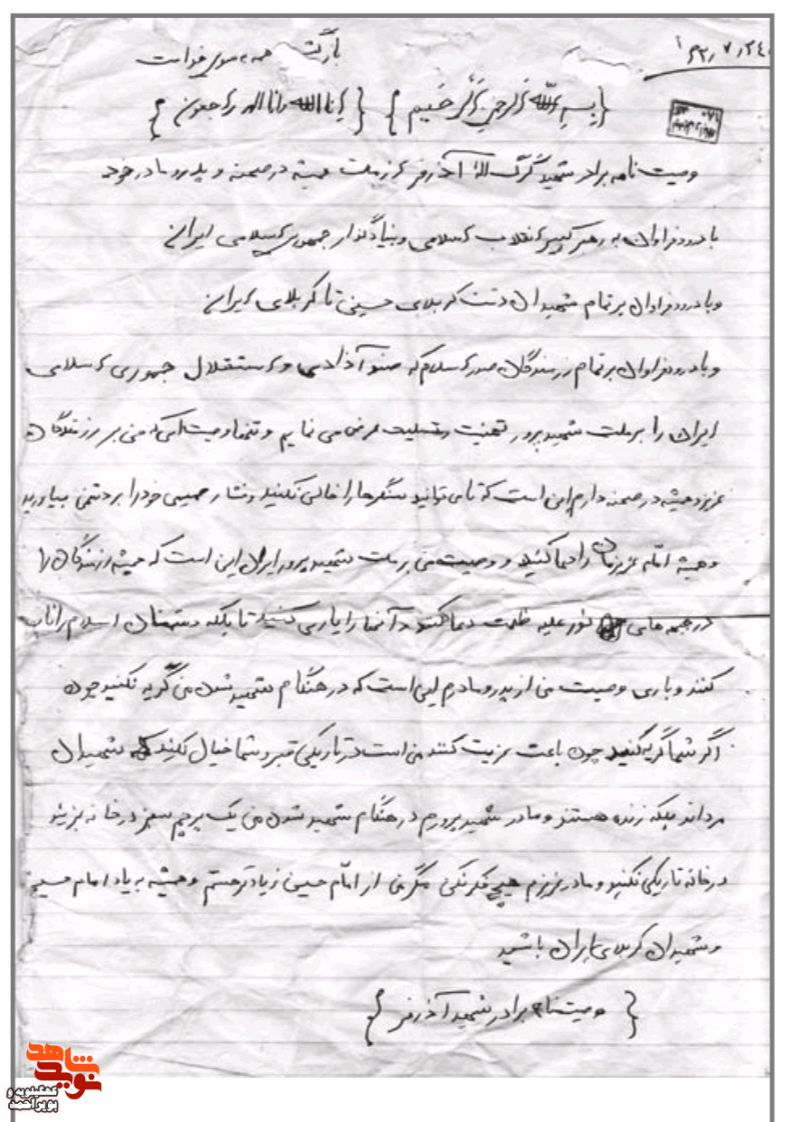 ۶۲/۷/۲۴
بازگشت همه بسوی خداست
{بسم الله الرحمن الرحیم} {انا لله وانا الیه راجعون}
وصیت نامه برادر شهید گرگ الله آذرفر از ملت همیشه در صحنه و پدر و مادر خود
با درود فراوان به رهبر کبیر انقلاب اسلامی و بنیادگذار جمهوری اسلامی ایران
وبا درود فراوان بر تمام شهیدان دشت کربلای حسینی تا کربلای ایران
وبا درود فراوان بر تمام رزمندگان صدر اسلام که آزادی و استقلال جمهوری اسلامی
ایران را بر ملت شهید پرور تهنیت و تسلیت عرض می نمایم و تنها وصیت اسکه من بر رزمندگان
عزیز و همیشه در صحنه دارم این است که تا می توانید سنگرها را خالی نکنید و فشار صمیمی خود را بر دشمن بیاورید
و همیشه امام عزیزمان را دعا کنید و وصیت من بر ملت شهید پرور ایران این است که همیشه رزمندگان را
در جبهه های نور علیه ظلمت دعا کنند و آنها را یاری کنید تا بلکه دشمنان اسلام را ناب
کنند و باری وصیت من از پدر و مادرم این است که در هنگام شهید شدن من گریه نکنید چون
اگر شما گریه کنید چون باعث عزیت کننده من است در تاریکی قبر و شما خیال نکنید که شهیدان
مرداند بلکه زنده هستند و مادر شهید پرورم در هنگام شهید شدن من یک پرچم سبز در خانه بزنید
در خانه تاریکی نکنید و مادر عزیزم هیچ فکر نکن مگر من از امام حسین زیادتر هستم و همیشه به یاد امام حسین
و شهیدان کربلای ایران باشید
{ وصیتنامه برادر شهید آذرفر }
نوید شاهد
کهگیلویه و
بویراحمد